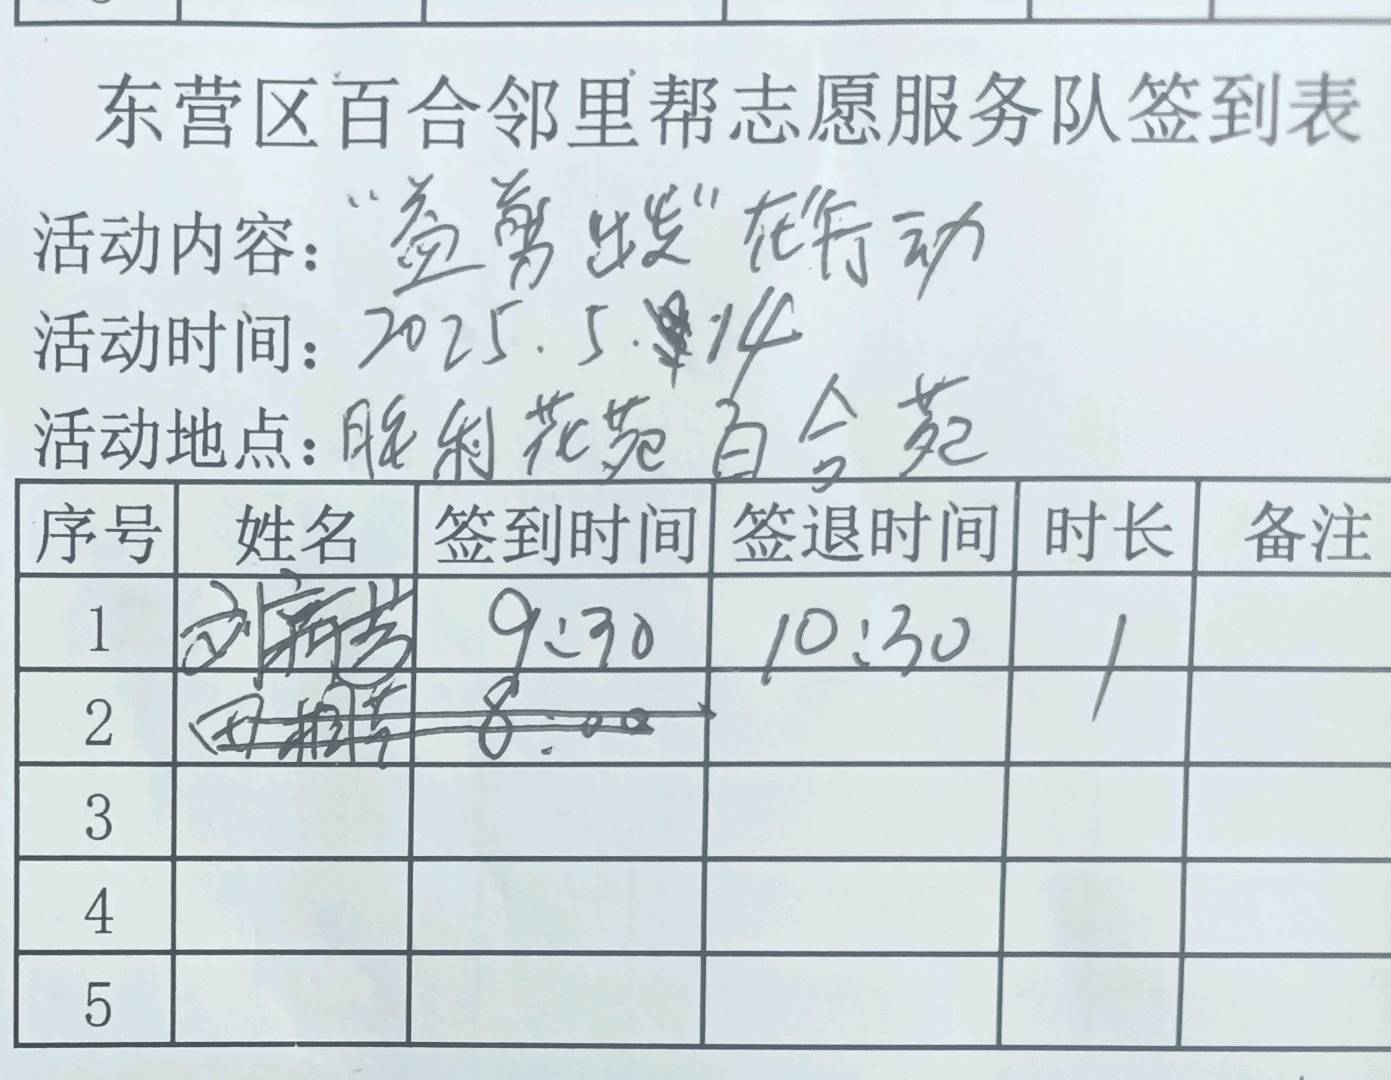 东营区百合邻里帮志愿服务队签到表
活动内容：“益剪出发”在行动
活动时间：2025.5.14
活动地点：胜利花苑百合苑
序号 姓名 签到时间 签退时间 时长 备注
1 刘新芳 9:30 10:30 1
2 田 8:00
3
4
5